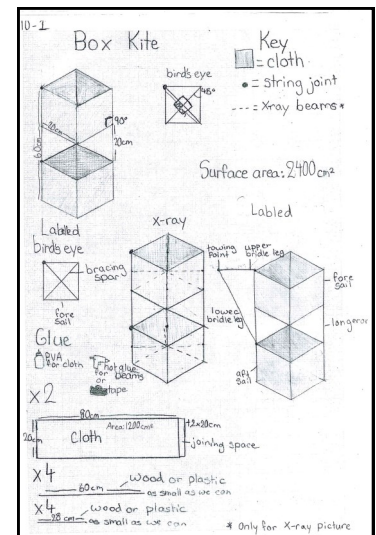 10-I
Box Kite
Key
= cloth
= string joint
--- = X-ray beams*
bird's eye
45°
90°
20cm
20cm
60cm
Surface area: 2400cm²
Labled
bird's eye
bracing
spar
fore
sail
x-ray
Labled
towing
point
upper
bridle leg
lower
bridle leg
fore
sail
longeror
aft
sail
Glue
PVA
for cloth
hot glue
for
beams
or
tape
x2
80cm
20cm
Cloth
Area: 1200cm²
+2x20cm
joining space
x4
60cm
wood or plastic
as small as we can
x4
28cm
wood or plastic
as small as we can
* Only for X-ray picture